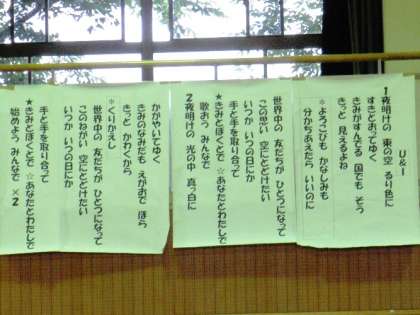 U & I
1夜明けの 東の空 るり色に
すきとおってゆく
きみがすんでる 国でも そう
きっと 見えるよね
*よろこびも かなしみも
分かちあえたら いいのに
世界中の 友だちが ひとつになって
この思い 空にとどけたい
いつか いつの日にか
手と手を取り合って
★きみとぼくとで ☆あなたとわたしで
歌おう みんなで
2夜明けの 光の中 真っ白に
かがやいてゆく
きみのなみだも えがおで ほら
きっと かわくから
*くりかえし
世界中の 友だちが ひとつになって
このねがい 空にとどけたい
いつか いつの日にか
手と手を取り合って
★きみとぼくとで ☆あなたとわたしで
始めよう みんなで ×2